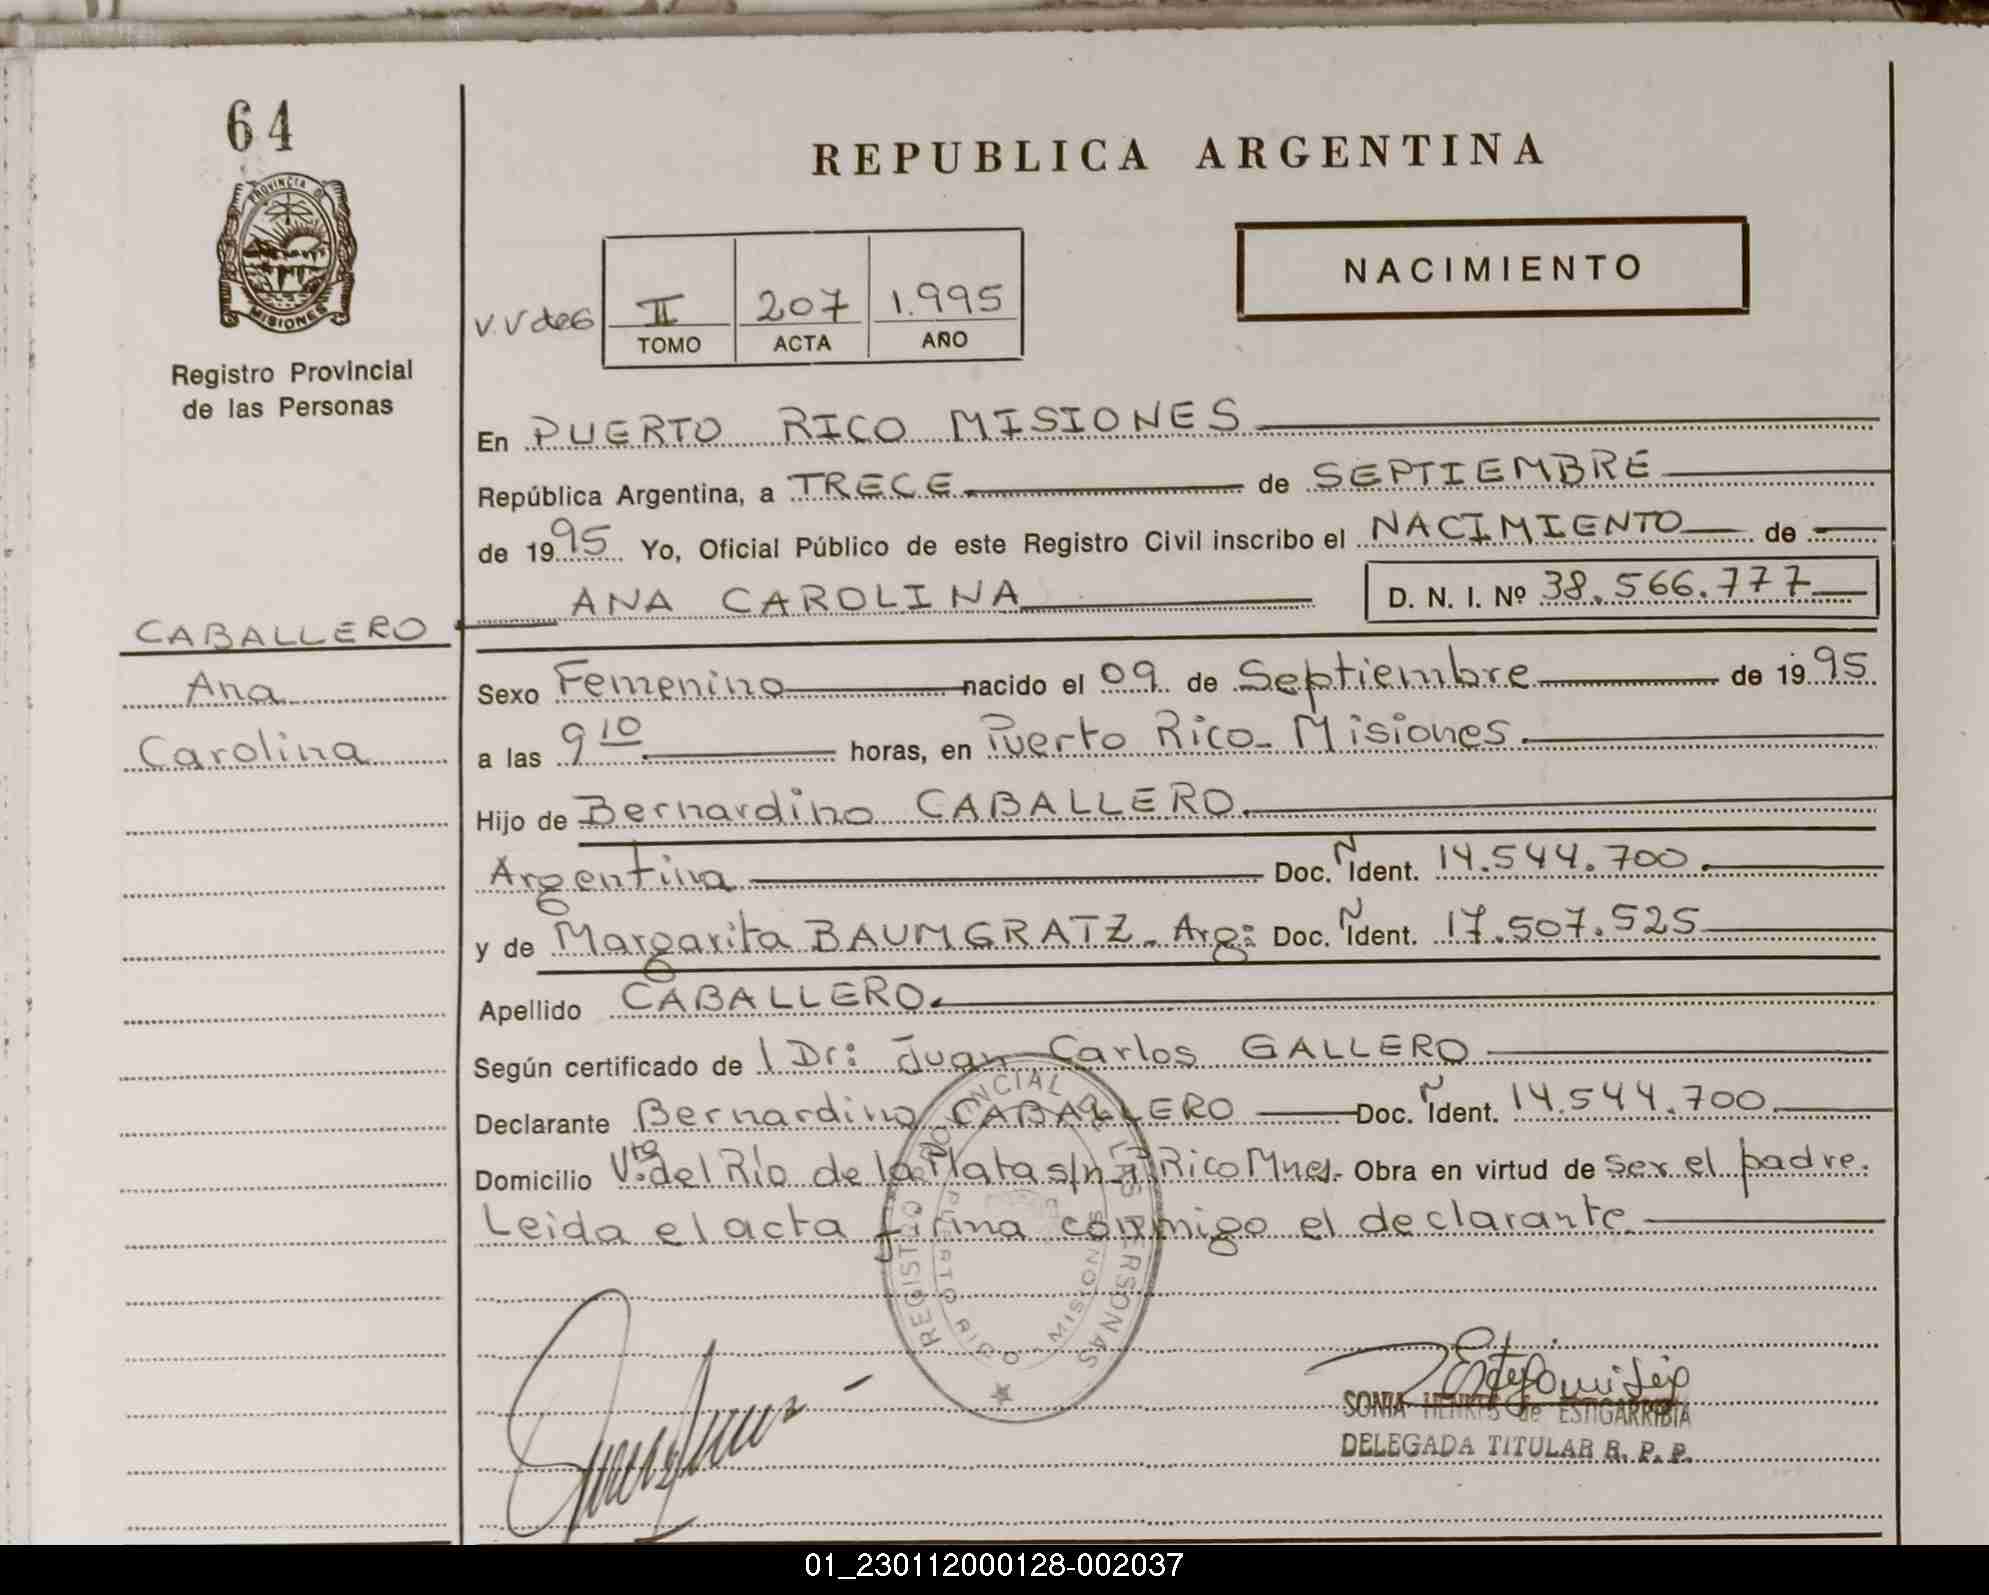 64
PROVINCIA DE
MISIONES
Registro Provincial
de las Personas
REPUBLICA ARGENTINA
NACIMIENTO
II 207 1.995
TOMO ACTA AÑO
En PUERTO RICO MISIONES
República Argentina, a TRECE de SEPTIEMBRE
de 1995 Yo, Oficial Público de este Registro Civil inscribo el NACIMIENTO de
ANA CAROLINA D. N. I. Nº 38.566.777
CABALLERO
Ana
Carolina
Sexo Femenino nacido el 09 de Septiembre de 1995
a las 9 10 horas, en Puerto Rico - Misiones.
Hijo de Bernardino CABALLERO.
Argentina Doc. Ñ Ident. 14.544.700.
y de Margarita BAUMGRATZ - Arg: Doc. Ñ Ident. 17.507.525
Apellido CABALLERO.
Según certificado de l Dr: Juan Carlos GALLERO
Declarante Bernardino CABALLERO Doc. Ñ Ident. 14.544.700
Domicilio Vto. del Río de la Plata s/n - P. Rico Mnes. Obra en virtud de ser el padre.
Leida el acta firma conmigo el declarante.
REGISTRO PROVINCIAL DE LAS PERSONAS
PUERTO RICO - MISIONES
SONIA HENKES de ESTIGARRIBIA
DELEGADA TITULAR R. P. P.
01_230112000128-002037